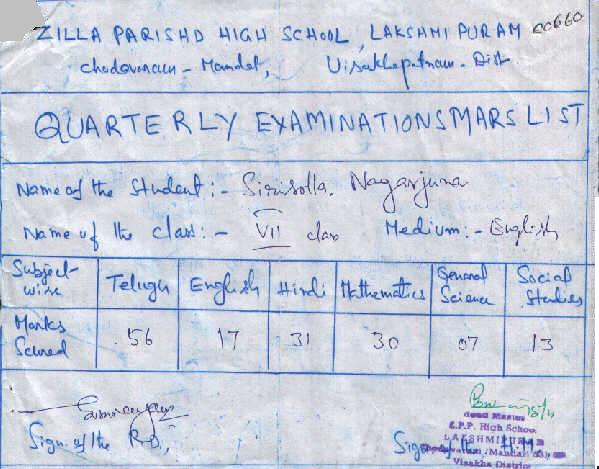 ZILLA PARISHD HIGH SCHOOL, LAKSHMIPURAM 00660
chodavaram - Mandal, Visakhapatnam - Dist
QUARTERLY EXAMINATIONS MARS LIST
Name of the Student :- Sirisolla. Nagarjuna
Name of the class :- VII class Medium :- English
Subject-wise Telugu English Hindi Mathematics General Science Social Studies
Marks Scured 56 17 31 30 07 13
Head Master
Z.P.P. High School
LAKSHMIPURAM
Mandal
Visakha District
Sign. of the Sign of the H.M.